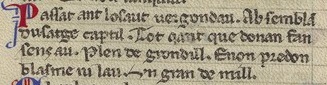 Passat ant lo saut vergondau. Ab sembla
du satge captil. Tot qant que donan fan
sens au. Plen de grondill. E non predon
blasme ni lau. un gran de mill.